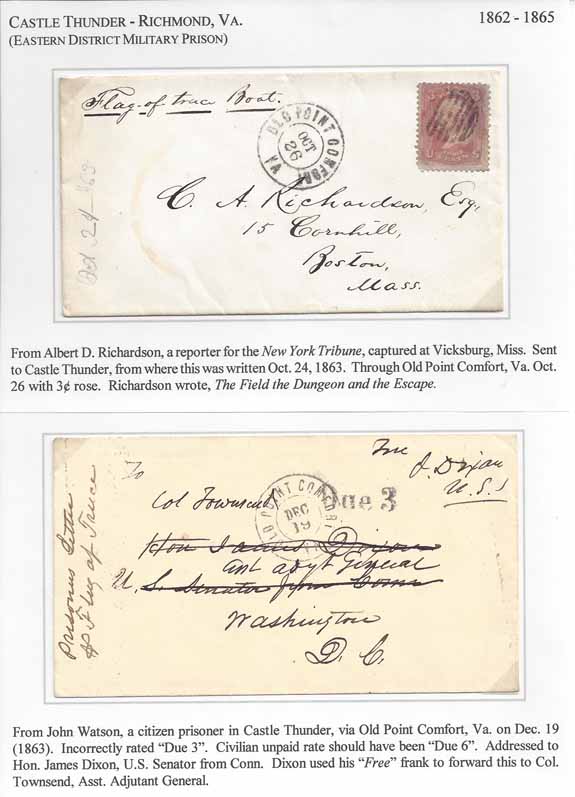 CASTLE THUNDER - RICHMOND, VA. 1862 - 1865
(EASTERN DISTRICT MILITARY PRISON)
Flag-of truce Boat.
OLD POINT COMFORT
OCT
26
VA
Oct 24 - 1863
C. A. Richardson, Esq,
15 Cornhill,
Boston,
Mass.
From Albert D. Richardson, a reporter for the New York Tribune, captured at Vicksburg, Miss. Sent
to Castle Thunder, from where this was written Oct. 24, 1863. Through Old Point Comfort, Va. Oct.
26 with 3¢ rose. Richardson wrote, The Field the Dungeon and the Escape.
Free
J. Dixon
U.S.S
To
Col Townsend
OLD POINT COMFORT
DEC
19
Due 3
Hon James Dixon
Asst adjt General
U. S. Senator from Conn
Washington
D. C.
Prisoners Letter
Flag of Truce
From John Watson, a citizen prisoner in Castle Thunder, via Old Point Comfort, Va. on Dec. 19
(1863). Incorrectly rated “Due 3”. Civilian unpaid rate should have been “Due 6”. Addressed to
Hon. James Dixon, U.S. Senator from Conn. Dixon used his “Free” frank to forward this to Col.
Townsend, Asst. Adjutant General.